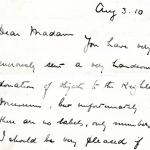 Aug 3. 10
Dear Madam You have very
generously sent a very handsome
donation of objects to the
Museum, but unfortunately
there are no labels, only numbers
I should be very pleased if